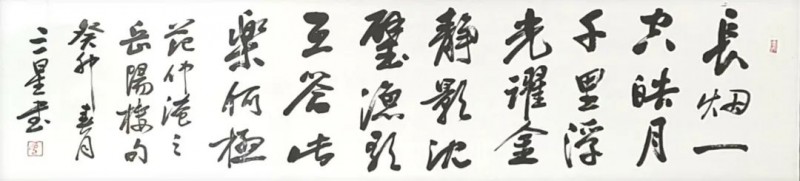 長烟一
空皓月
千里浮
光躍金
静影沈
璧漁歌
互答此
樂何極
范仲淹之
岳陽樓句
癸卯春月
三星书